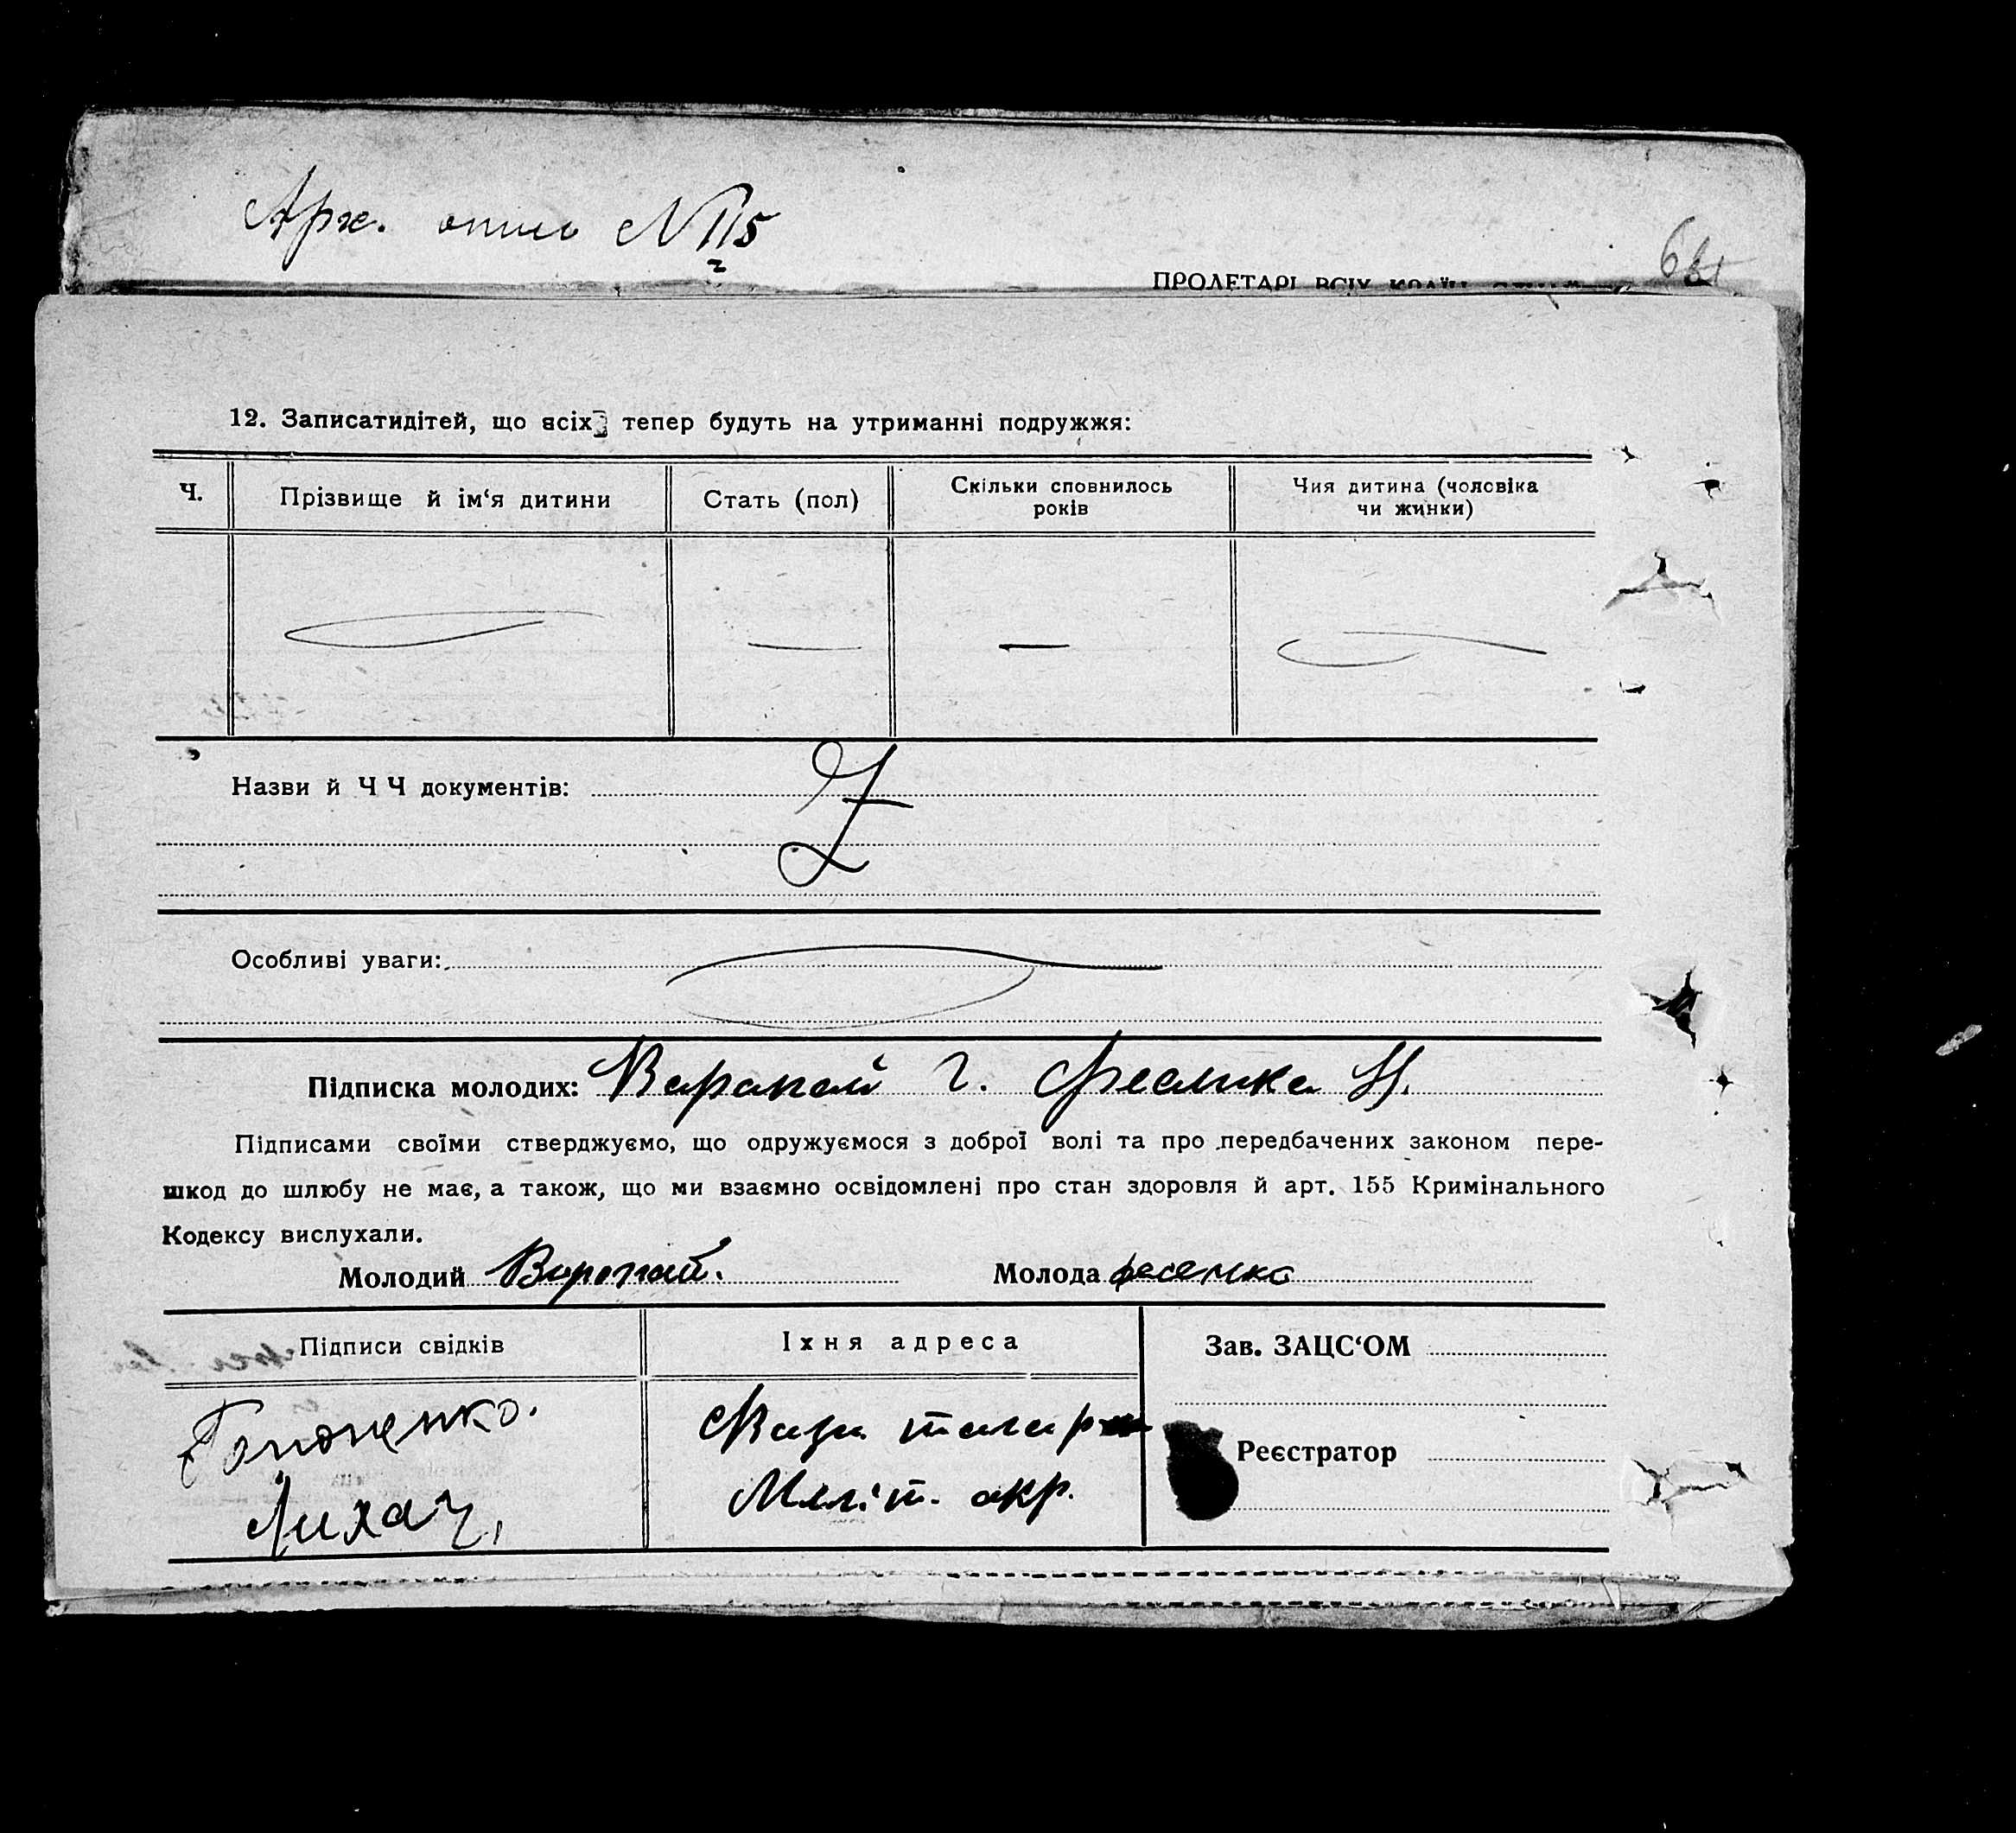 Арх. опис №115
2
ПРОЛЕТАРІ ВСІХ КРАЇН
12. Записатидітей, що всіх тепер будуть на утриманні подружжя:
Ч.
Прізвище й ім‘я дитини
Стать (пол)
Скільки сповнилось років
Чия дитина (чоловіка чи жинки)
Назви й Ч Ч документів:
Z
Особливі уваги:
Підписка молодих: Варапай Г. Фесенко Н.
Підписами своїми стверджуємо, що одружуємося з доброї волі та про передбачених законом пере-
шкод до шлюбу не має, а також, що ми взаємно освідомлені про стан здоровля й арт. 155 Кримінального
Кодексу вислухали.
Молодий Воропай. Молода фесенко
Підписи свідків
Їхня адреса
Зав. ЗАЦС‘ОМ
Реєстратор
Лихач,
Меліт. окр.